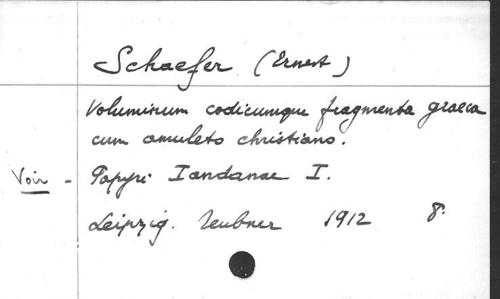 Schaefer (Ernest)
Voluminum codicumque fragmenta graeca
cum amuleto christiano.
Voir - Papyri Iandanae I.
Leipzig. Teubner 1912 8°.